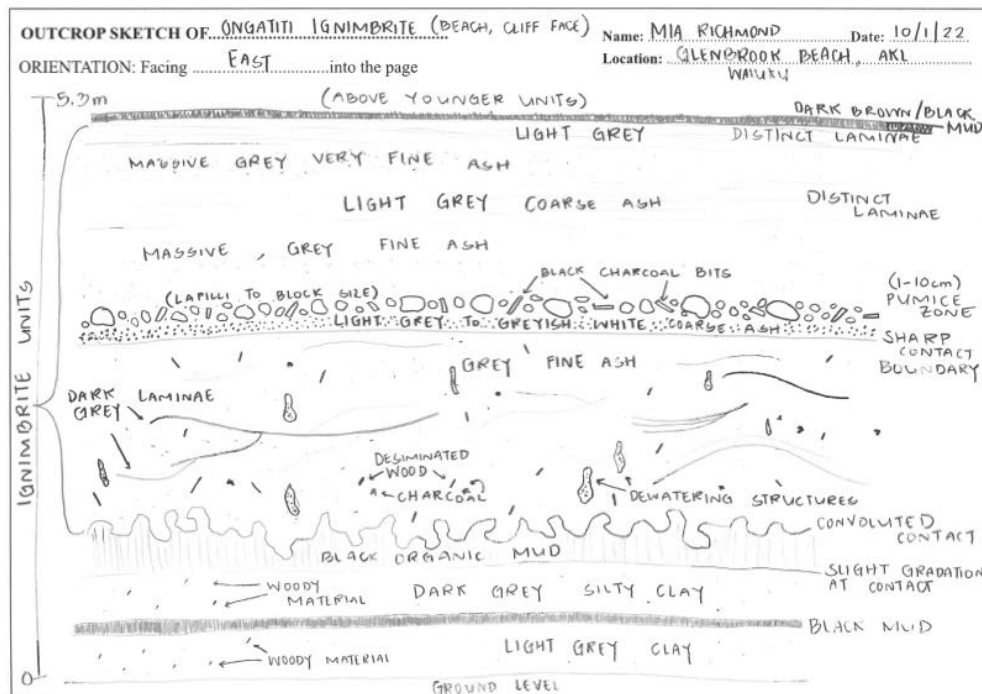 OUTCROP SKETCH OF ONGATITI IGNIMBRITE (BEACH, CLIFF FACE)
Name: MIA RICHMOND Date: 10/1/22
ORIENTATION: Facing EAST into the page
Location: GLENBROOK BEACH, AKL
WAIUKU
5.3m
(ABOVE YOUNGER UNITS)
DARK BROWN/BLACK
MUD
LIGHT GREY
DISTINCT LAMINAE
MASSIVE GREY VERY FINE ASH
LIGHT GREY COARSE ASH
DISTINCT
LAMINAE
MASSIVE, GREY FINE ASH
BLACK CHARCOAL BITS
(LAPILLI TO BLOCK SIZE)
(1-10cm)
PUMICE
ZONE
LIGHT GREY TO GREYISH WHITE COARSE ASH
SHARP
CONTACT
BOUNDARY
GREY FINE ASH
IGNIMBRITE UNITS
DARK
GREY
LAMINAE
DESIMINATED
WOOD
CHARCOAL
DEWATERING STRUCTURES
CONVOLUTED
CONTACT
BLACK ORGANIC MUD
SLIGHT GRADATION
AT CONTACT
WOODY
MATERIAL
DARK GREY SILTY CLAY
BLACK MUD
WOODY MATERIAL
LIGHT GREY CLAY
0
GROUND LEVEL